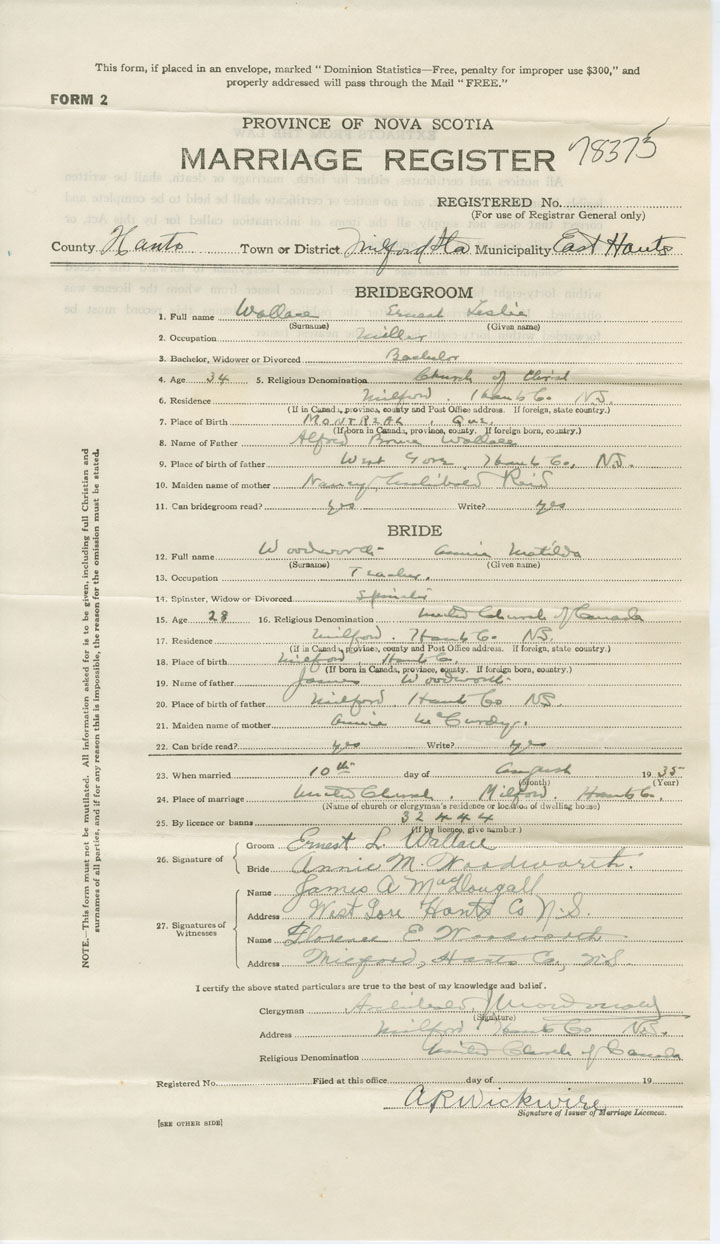 This form, if placed in an envelope, marked "Dominion Statistics—Free, penalty for improper use $300," and
properly addressed will pass through the Mail "FREE."
FORM 2
PROVINCE OF NOVA SCOTIA
MARRIAGE REGISTER 78375
REGISTERED No.
(For use of Registrar General only)
County Hants Town or District Milford Sta Municipality East Hants
BRIDEGROOM
1. Full name Wallace Ernest Leslie
(Surname) (Given name)
2. Occupation Miller
3. Bachelor, Widower or Divorced Bachelor
4. Age 34 5. Religious Denomination Church of Christ
6. Residence Milford. Hants Co. N.S.
(If in Canada, province, county and Post Office address. If foreign, state country.)
7. Place of Birth MONTREAL, QUE.
(If born in Canada, province, county. If foreign born, country.)
8. Name of Father Alford Bruce Wallace
9. Place of birth of father West Gore, Hants Co, N.S.
10. Maiden name of mother Nancy Archibald Reid
11. Can bridegroom read? yes Write? yes
BRIDE
12. Full name Woodworth Annie Matilda
(Surname) (Given name)
13. Occupation Teacher.
14. Spinster, Widow or Divorced Spinster
15. Age 28 16. Religious Denomination United Church of Canada
17. Residence Milford. Hants Co NS.
(If in Canada, province, county and Post Office address. If foreign, state country.)
18. Place of birth Milford, Hants C.
(If born in Canada, province, county. If foreign born, country.)
19. Name of father James Woodworth
20. Place of birth of father Milford, Hants Co NS.
21. Maiden name of mother Annie McCurdy.
22. Can bride read? yes Write? yes
23. When married 10th day of August 1935
(Month) (Year)
24. Place of marriage United Church, Milford. Hants Co.
(Name of church or clergyman's residence or location of dwelling house)
25. By licence or banns 32444
(If by licence, give number.)
26. Signature of Groom Ernest L. Wallace
Bride Annie M. Woodworth.
27. Signatures of Witnesses
Name James A MacDougall
Address West Gore Hants Co N.S.
Name Florence E Woodworth
Address Milford, Hants Co, N.S
I certify the above stated particulars are true to the best of my knowledge and belief.
Clergyman Archibald
(Signature)
Address Milford Hants Co N.S.
Religious Denomination United Church of Canada
Registered No. Filed at this office day of 19
A R Wickwire
Signature of Issuer of Marriage Licences.
[SEE OTHER SIDE]
NOTE.—This form must not be mutilated. All information asked for is to be given, including full Christian and
surnames of all parties, and if for any reason this is impossible, the reason for the omission must be stated.